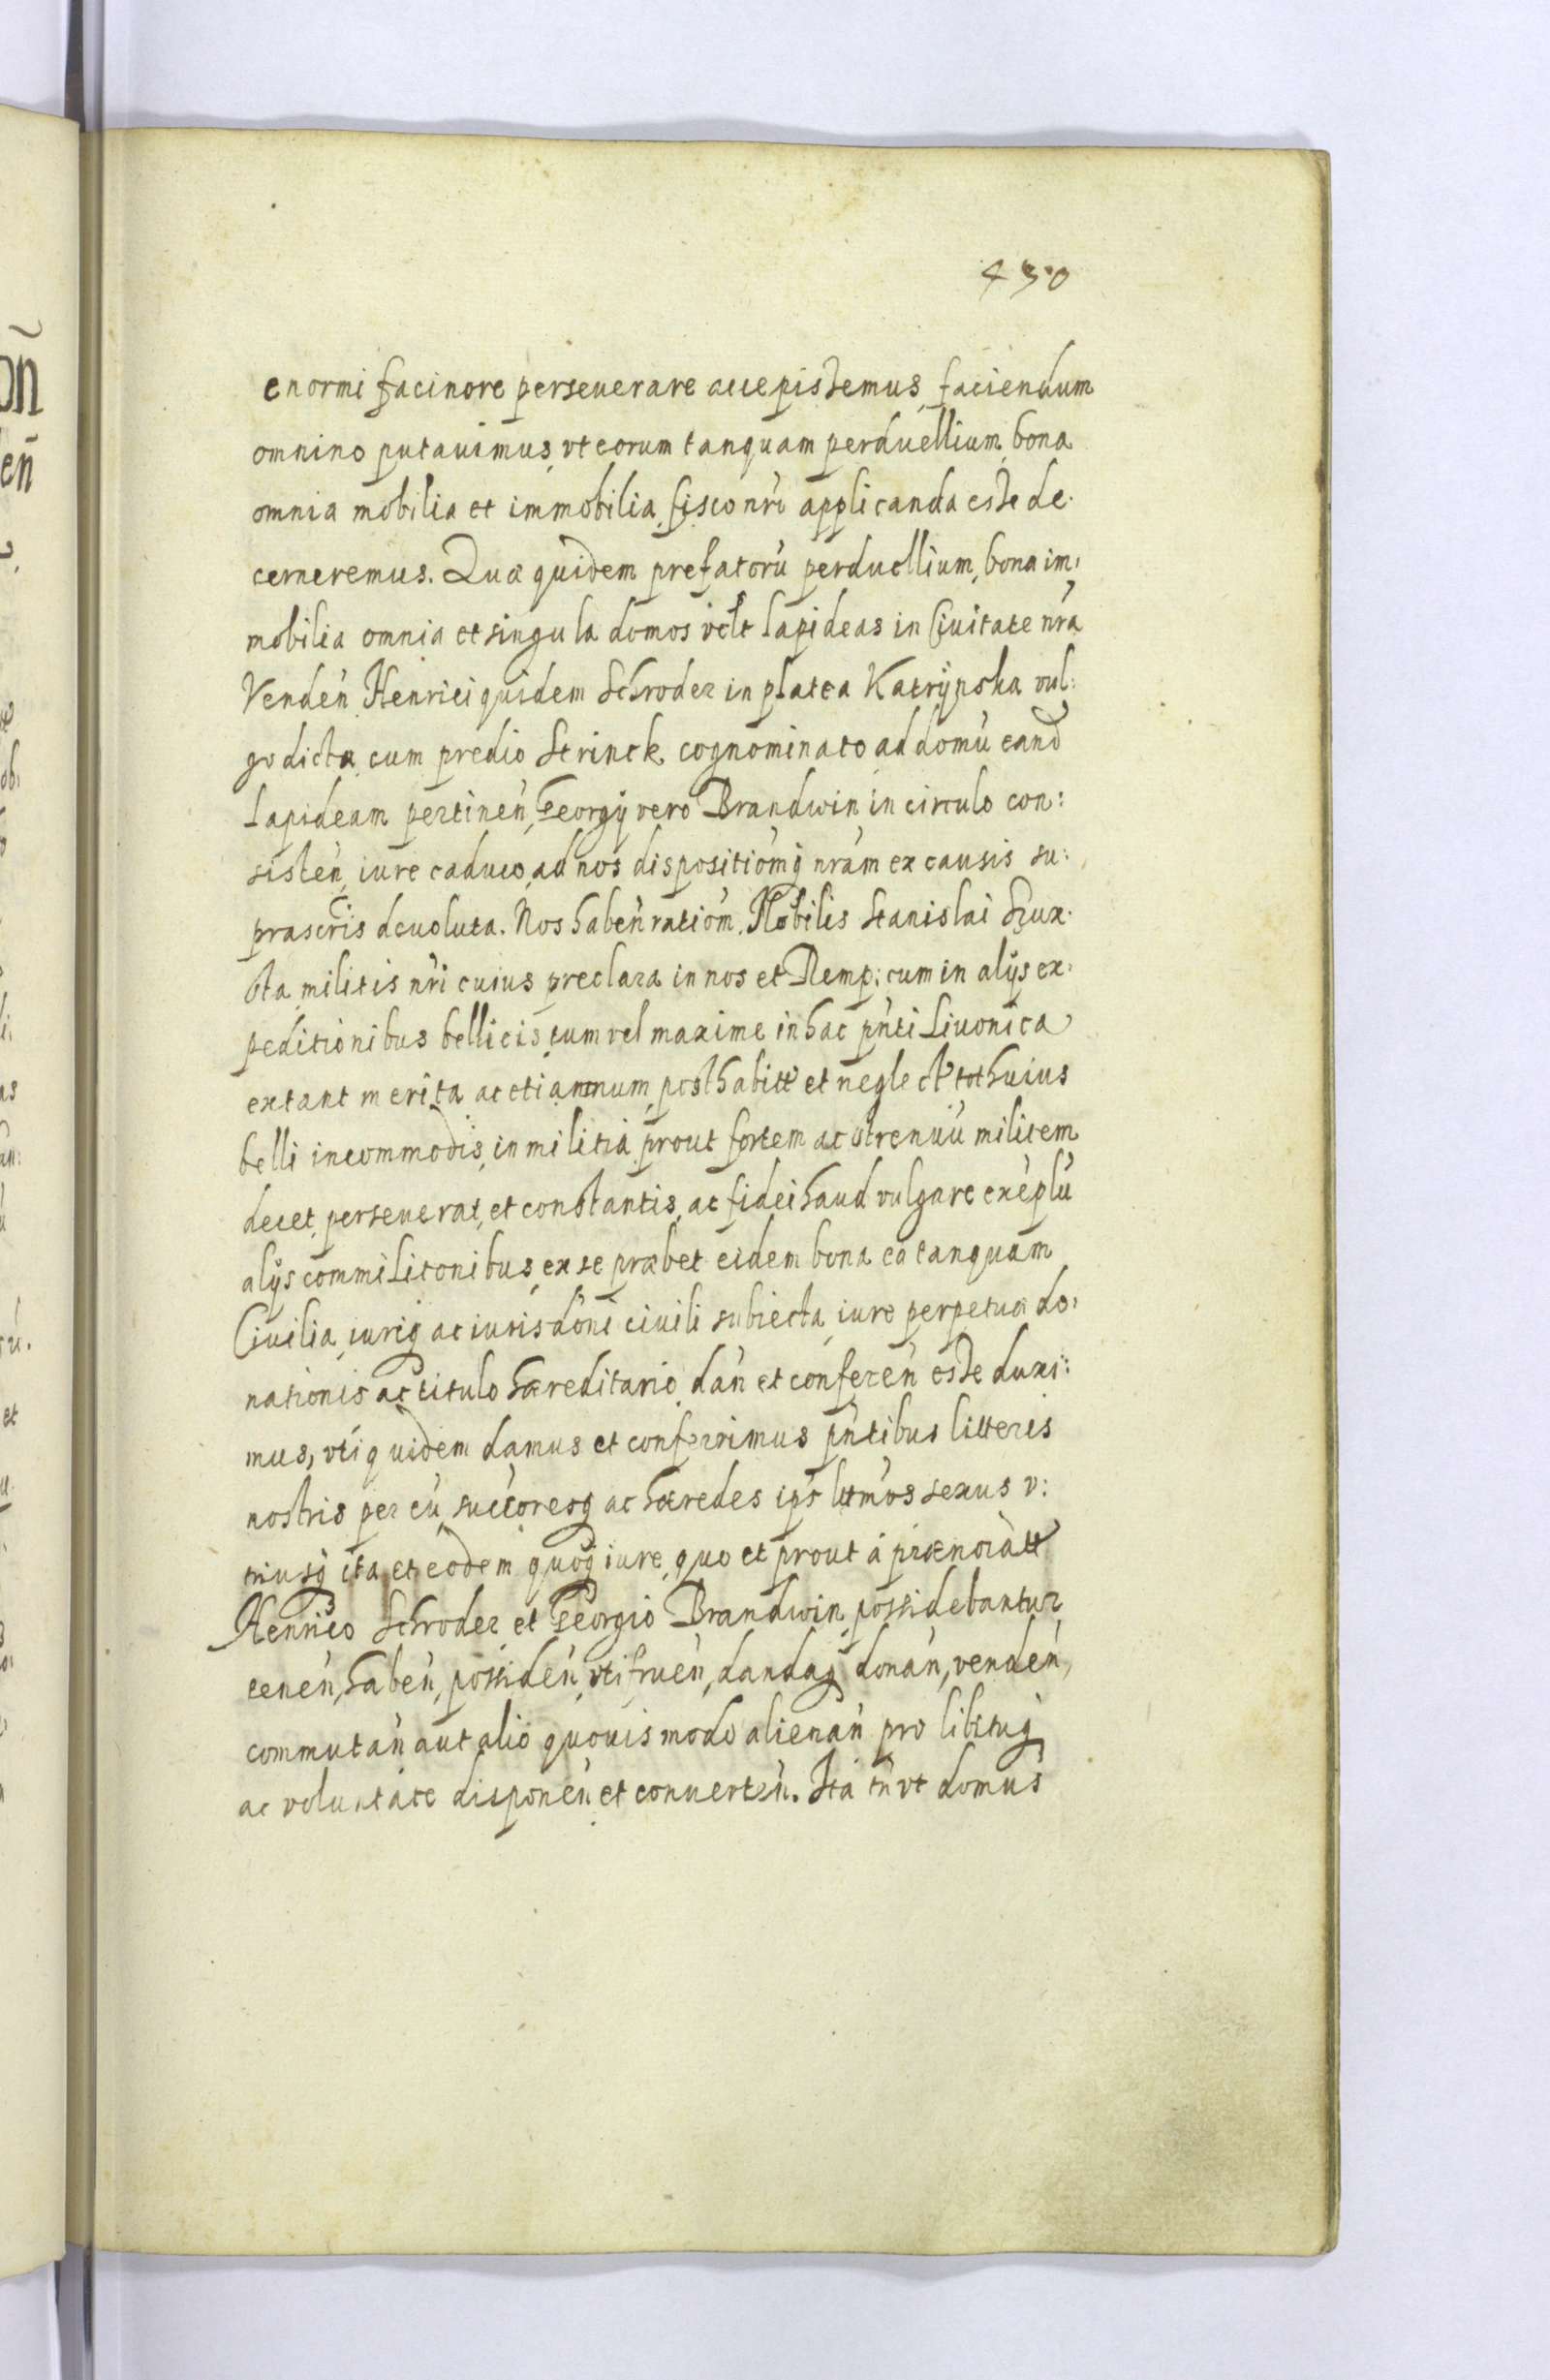 430
enormi facinore perseuerare accepissemus, faciendum
omnino putauimus, vt eorum tanquam perduellium, bona
omnia mobilia et immobilia, fisco nro applicanda esse de-
cerneremus. Quæ quidem prefatorũ perduellium, bona im:
mobilia omnia et singula domos vclt lapideas in Ciuitate nra
Venden̄ Henrici quidem Schroder in platea Katrÿnska vul:
go dicta, cum predio Strinck cognominato, ad domũ eand
lapideam pertinen̄, Georgÿ vero Brandwin, in circulo con:
sisten̄, iure caduco, ad nos dispositiom̄q nram̄ ex causis su:
prascris deuoluta. Nos haben̄ ratiom̄, Nobilis Stanislai
sta, militis nri cuius preclara in nos et Remp: cum in alÿs ex:
peditionibus bellicis, tum vel maxime in hac pn̄ti Liuonica
extant merita, ac etiamnum, posthabitt et neglect tot huius
belli incommodis, in militia prout fortem ac strenuũ militem
decet, perseuerat, et constantis, ac fidei haud vulgare exeplũ
alÿs commilitonibus, ex se præbet eidem bona ea tanquam
Ciuilia, iuriq ac iurisdoni ciuili subiecta, iure perpetuæ do:
nationis ac titulo hæreditario, dan̄ et conferen̄ esse duxi:
mus, vti quidem damus et conferrimus pn̄tibus litteris
nostris per eũ, succoresq ac hæredes ips ltmos sexus v:
triusq ita et eodem quoq iure, quo et prout à prænoiatt
Henrico Schroder et Georgio Brandwin possidebantur
tenen̄, haben̄, possiden̄, vtifruen̄, dandaq donan̄, venden̄,
commutan̄ aut alio quouis modo alienan̄ pro libituq
ac voluntate disponen̄ et conuerten̄. Ita tn̄ vt domus